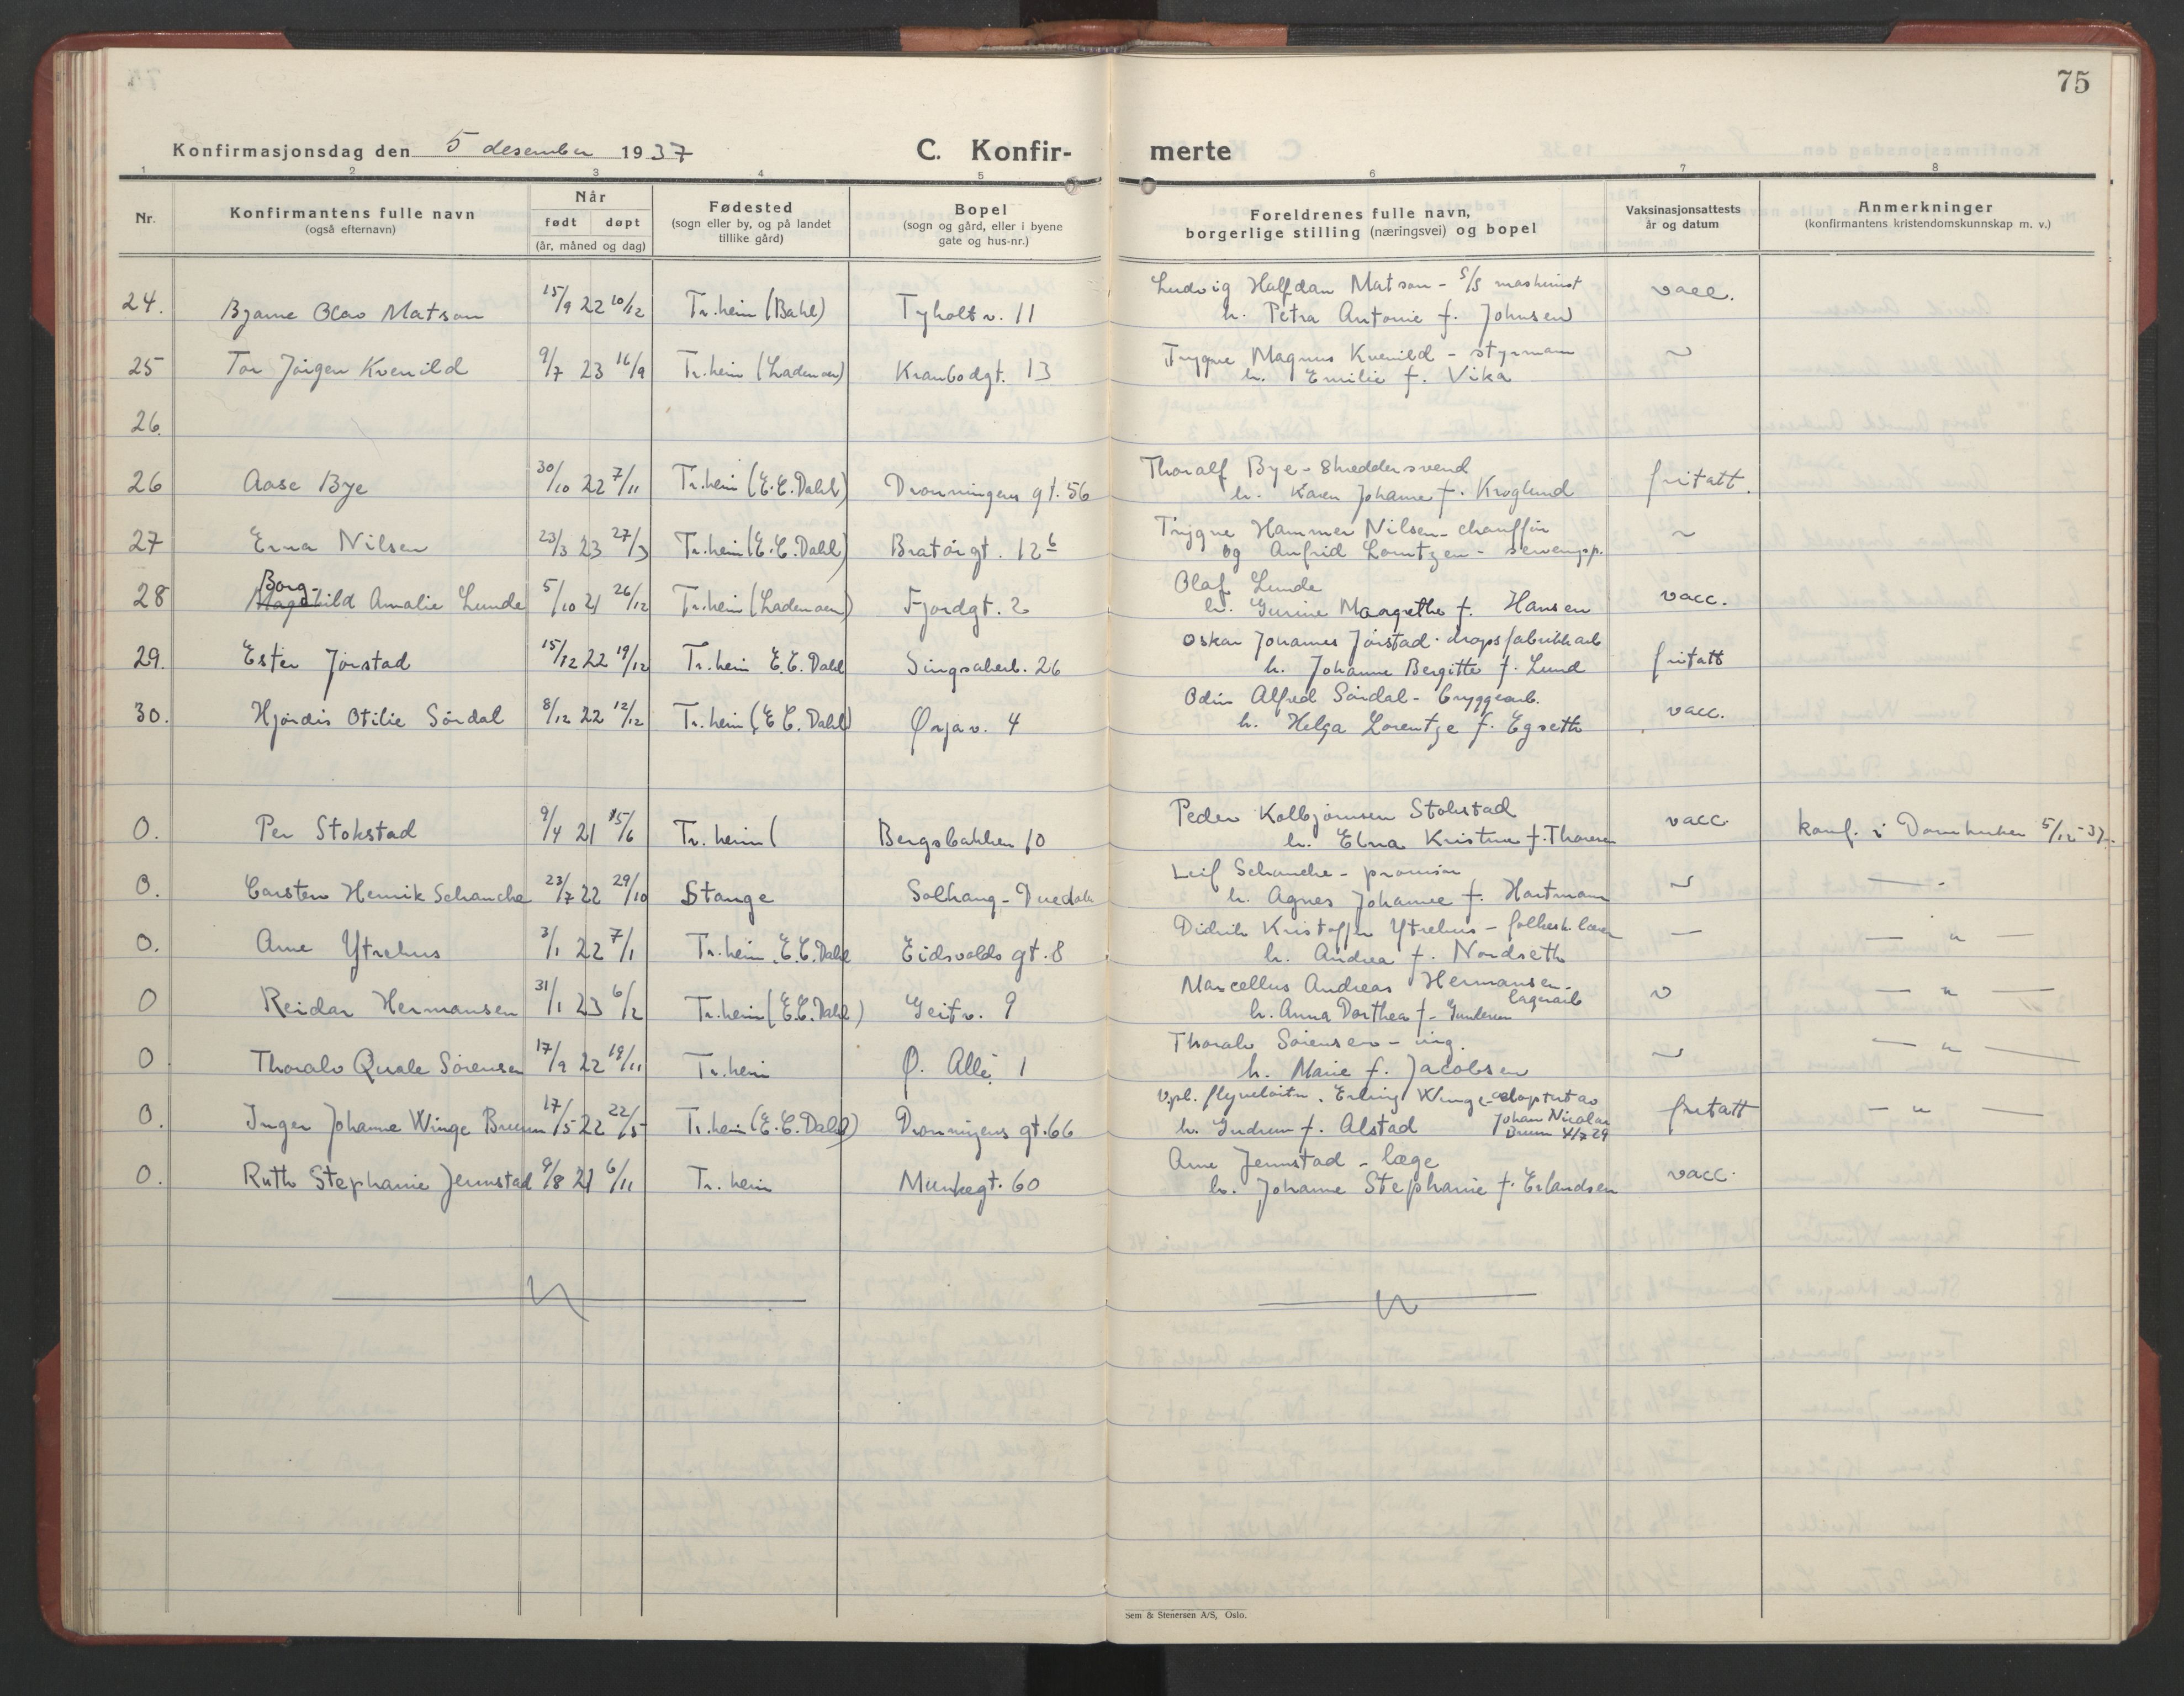 75
Konfirmasjonsdag den 5 desember 1937
C. Konfir-
merte
1 2 3 4 5 6 7 8
Nr.
Konfirmantens fulle navn
(også efternavn)
Når
født døpt
(år, måned og dag)
Fødested
(sogn eller by, og på landet
tillike gård)
Bopel
(sogn og gård, eller i byene
gate og hus-nr.)
Foreldrenes fulle navn,
borgerlige stilling (næringsvei) og bopel
Vaksinasjonsattests
år og datum
Anmerkninger
(konfirmantens kristendomskunnskap m. v.)
Ludvig Halfdan Matson - S/S maskinist
24. Bjarne Olav Matson 15/9 22 10/12 Tr.heim (Bakl) Tyholtv. 11 h. Petra Antonie f. Johnsen vacc.
Trygve Magnus Kvenild - styrmann
25 Tor Jörgen Kvenild 9/7 23 16/9 Tr.heim (Lademoen) Krambodgt. 13 h. Emilie f. Vika ~
26.
Thoralf Bye - Skreddersvend
26 Aase Bye 30/10 22 7/11 Tr.heim (E.C.Dahl) Dronningens gt. 56 h. Karen Johanne f. Kroglund fritatt.
Trygve Hammer Nilsen - chauffør
27 Erna Nilsen 23/3 23 27/3 Tr.heim (E.C.Dahl) Bratörgt. 12 b og Anfrid Lorntzen - ~
Borg- Olaf Lunde
28 Magnhild Amalie Lunde 5/10 21 26/12 Tr.heim (Lademoen) Fjordgt. 2 h. Gurine Margrethe f. Hansen vacc.
Oskar Johannes Jörstad - dropsfabrikkarb
29. Ester Jörstad 15/12 22 19/12 Tr.heim E.C. Dahl Singsakerb. 26 h. Johanne Bergitte f. Lund fritatt
Odin Alfred Sördal - bryggearb.
30. Hjördis Otilie Sördal 8/12 22 12/12 Tr.heim (E.C. Dahl) Ørjav. 4 h. Helga Lorentze f. Egseth vacc.
Peder Kolbjörnsen Stokstad
0. Per Stokstad 9/4 21 15/6 Tr.heim ( Bergsbakken 10 h. Edna Kristine f. Thoresen vacc. konf. i Domkirken 5/12-37.
Leif Schanche - provisor
0. Carsten Henrik Schanche 23/7 22 29/10 Stange Solhaug - h. Agnes Johanne f. Hartmann ~ — " —
Didrik Kristoffer Ytrehus - folkesk. lærer
0. Arne Ytrehus 3/1 22 7/1 Tr.heim E.C. Dahl Eidsvolds gt. 8 h. Andrea f. Nordseth — — " —
Marcellus Andreas Hermansen -
lagerarb
0 Reidar Hermansen 31/1 23 6/2 Tr.heim (E.C. Dahl) Geitv. 9 h. Anna Dorthea f. Gundersen ~ — " —
Thoralv Sörensen - ing.
0. Thoralv Quale Sörensen 17/9 22 19/11 Tr.heim Ø. Allé 1 h. Marie f. Jacobsen ~ — " —
V.pl. flyveløitn. Erling Winge - adoptert av
0. Inger Johanne Winge Bruun 17/5 22 22/5 Tr.heim (E.C. Dahl) Dronningens gt. 66 h. Gudrun f. Alstad Johan Nicolai fritatt — " —
Bruun 4/7 29
Arne Jermstad - læge
0. Ruth Stephanie Jermstad 9/8 21 6/11 Tr.heim Munkegt. 60 h. Johanne Stephanie f. Erlandsen vacc.
Sem & Stenersen A/S, Oslo.